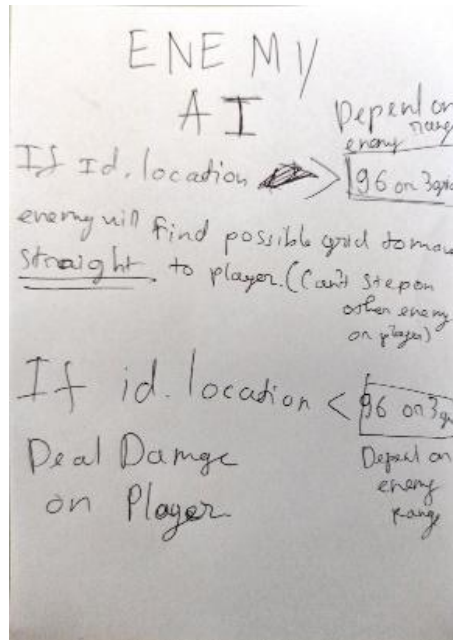 ENEMY
AI
Depend on
enemy range
If Id. location > 96 or 3 grid
enemy will find possible grid to move
straight to player. (Can't step on
other enemy
or player)
If id. location < 96 or 3 gr
Deal Damge
on Player
Depend on
enemy
range